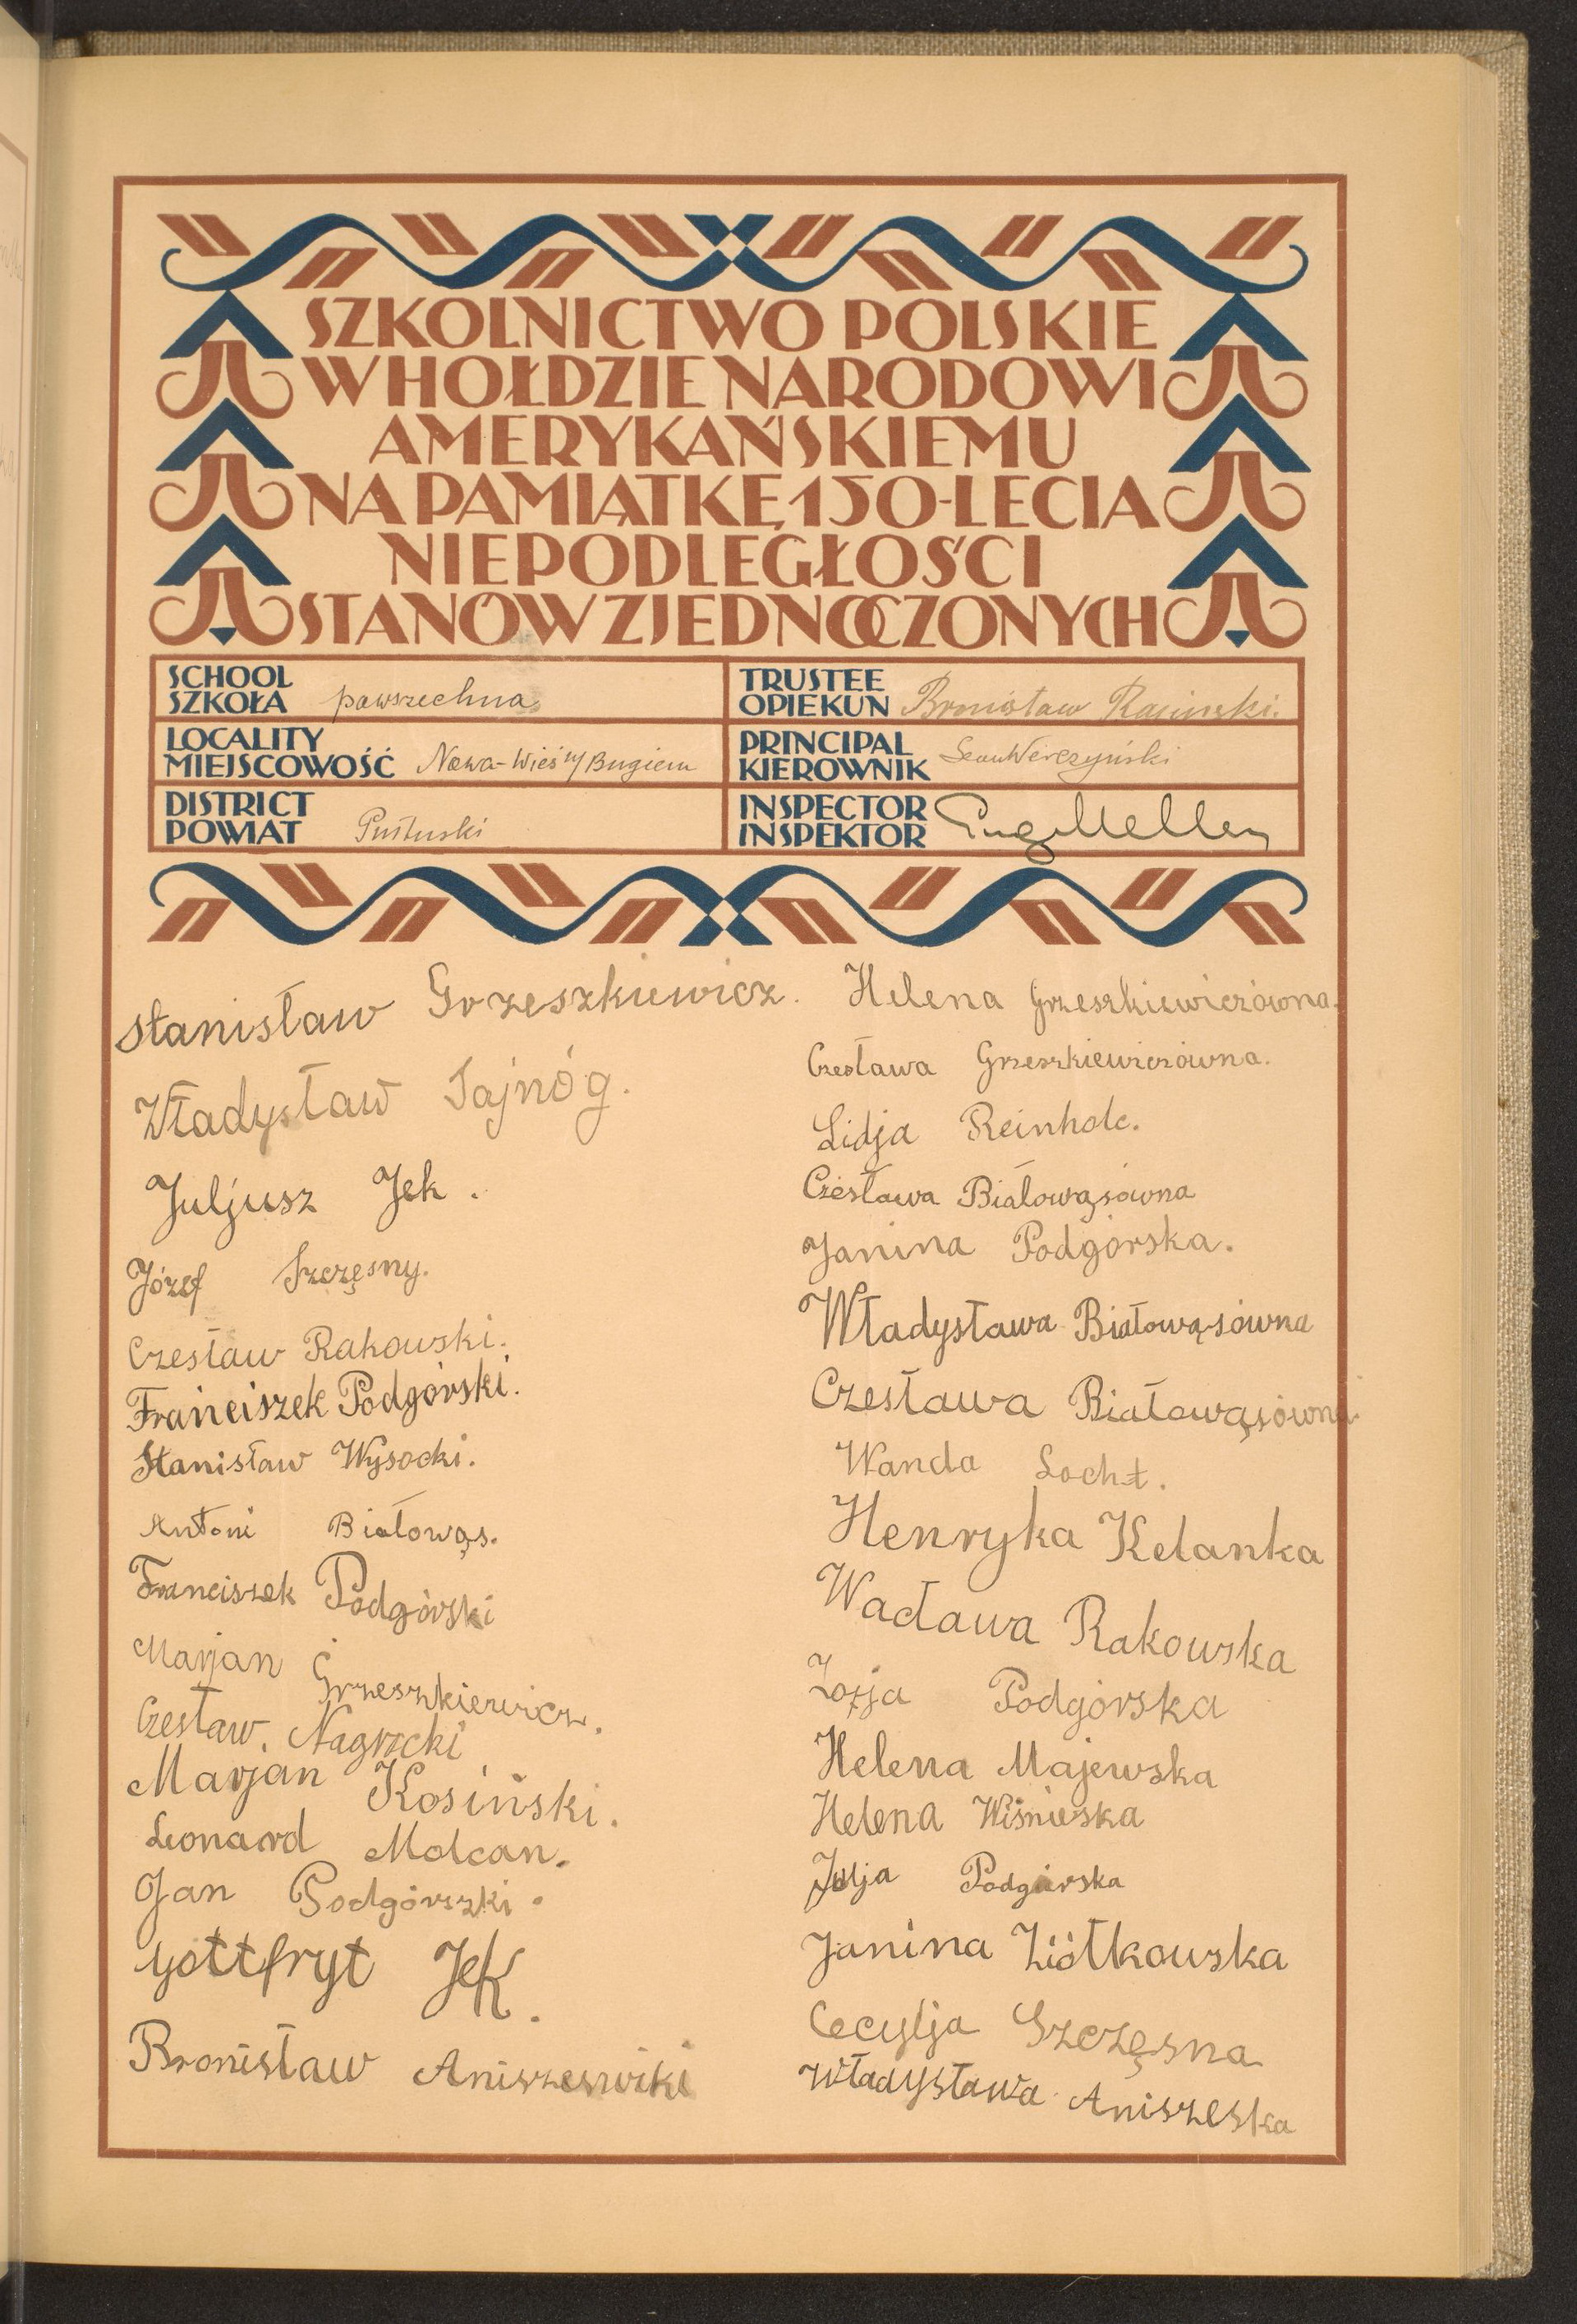 SZKOLNICTWO POLSKIE
W HOŁDZIE NARODOWI
AMERYKAŃSKIEMU
NA PAMIĄTKĘ 150-LECIA
NIEPODLEGŁOŚCI
STANÓW ZJEDNOCZONYCH
SCHOOL
SZKOŁA powszechna
TRUSTEE
OPIEKUN Bronisław Rasinski.
LOCALITY
MIEJSCOWOŚĆ Nowa-Wieś n/Bugiem
PRINCIPAL
KIEROWNIK Leon Werczyński
DISTRICT
POWIAT Pułtuski
INSPECTOR
INSPEKTOR
Stanisław Grzeszkiewicz.
Władysław Tajnóg.
Juljusz Jek.
Józef Szczęsny.
Czesław Rakowski.
Franciszek Podgórski.
Stanisław Wysocki.
Antoni Białowąs.
Franciszek Podgórski
Marjan Grzeszkiewicz.
Czesław. Nagrocki
Marjan Kosiński.
Leonard Molcan.
Jan Podgórszki.
Gottfryt Jek.
Bronisław Aniszewski
Helena Grzeszkiewiczówna.
Czesława Grzeszkiewiczówna.
Lidja Reinholc.
Czesława Białowąsówna
Janina Podgórska.
Władysława Białowąsówna
Czesława Białowąsówna.
Wanda Locht.
Henryka Kelanka
Wacława Rakowska
Zofja Podgórska
Helena Majewska
Helena Wiśnieska
Julja Podgórska
Janina Ziółkowska
Cecylja Szczęsna
Władysława Aniszeska